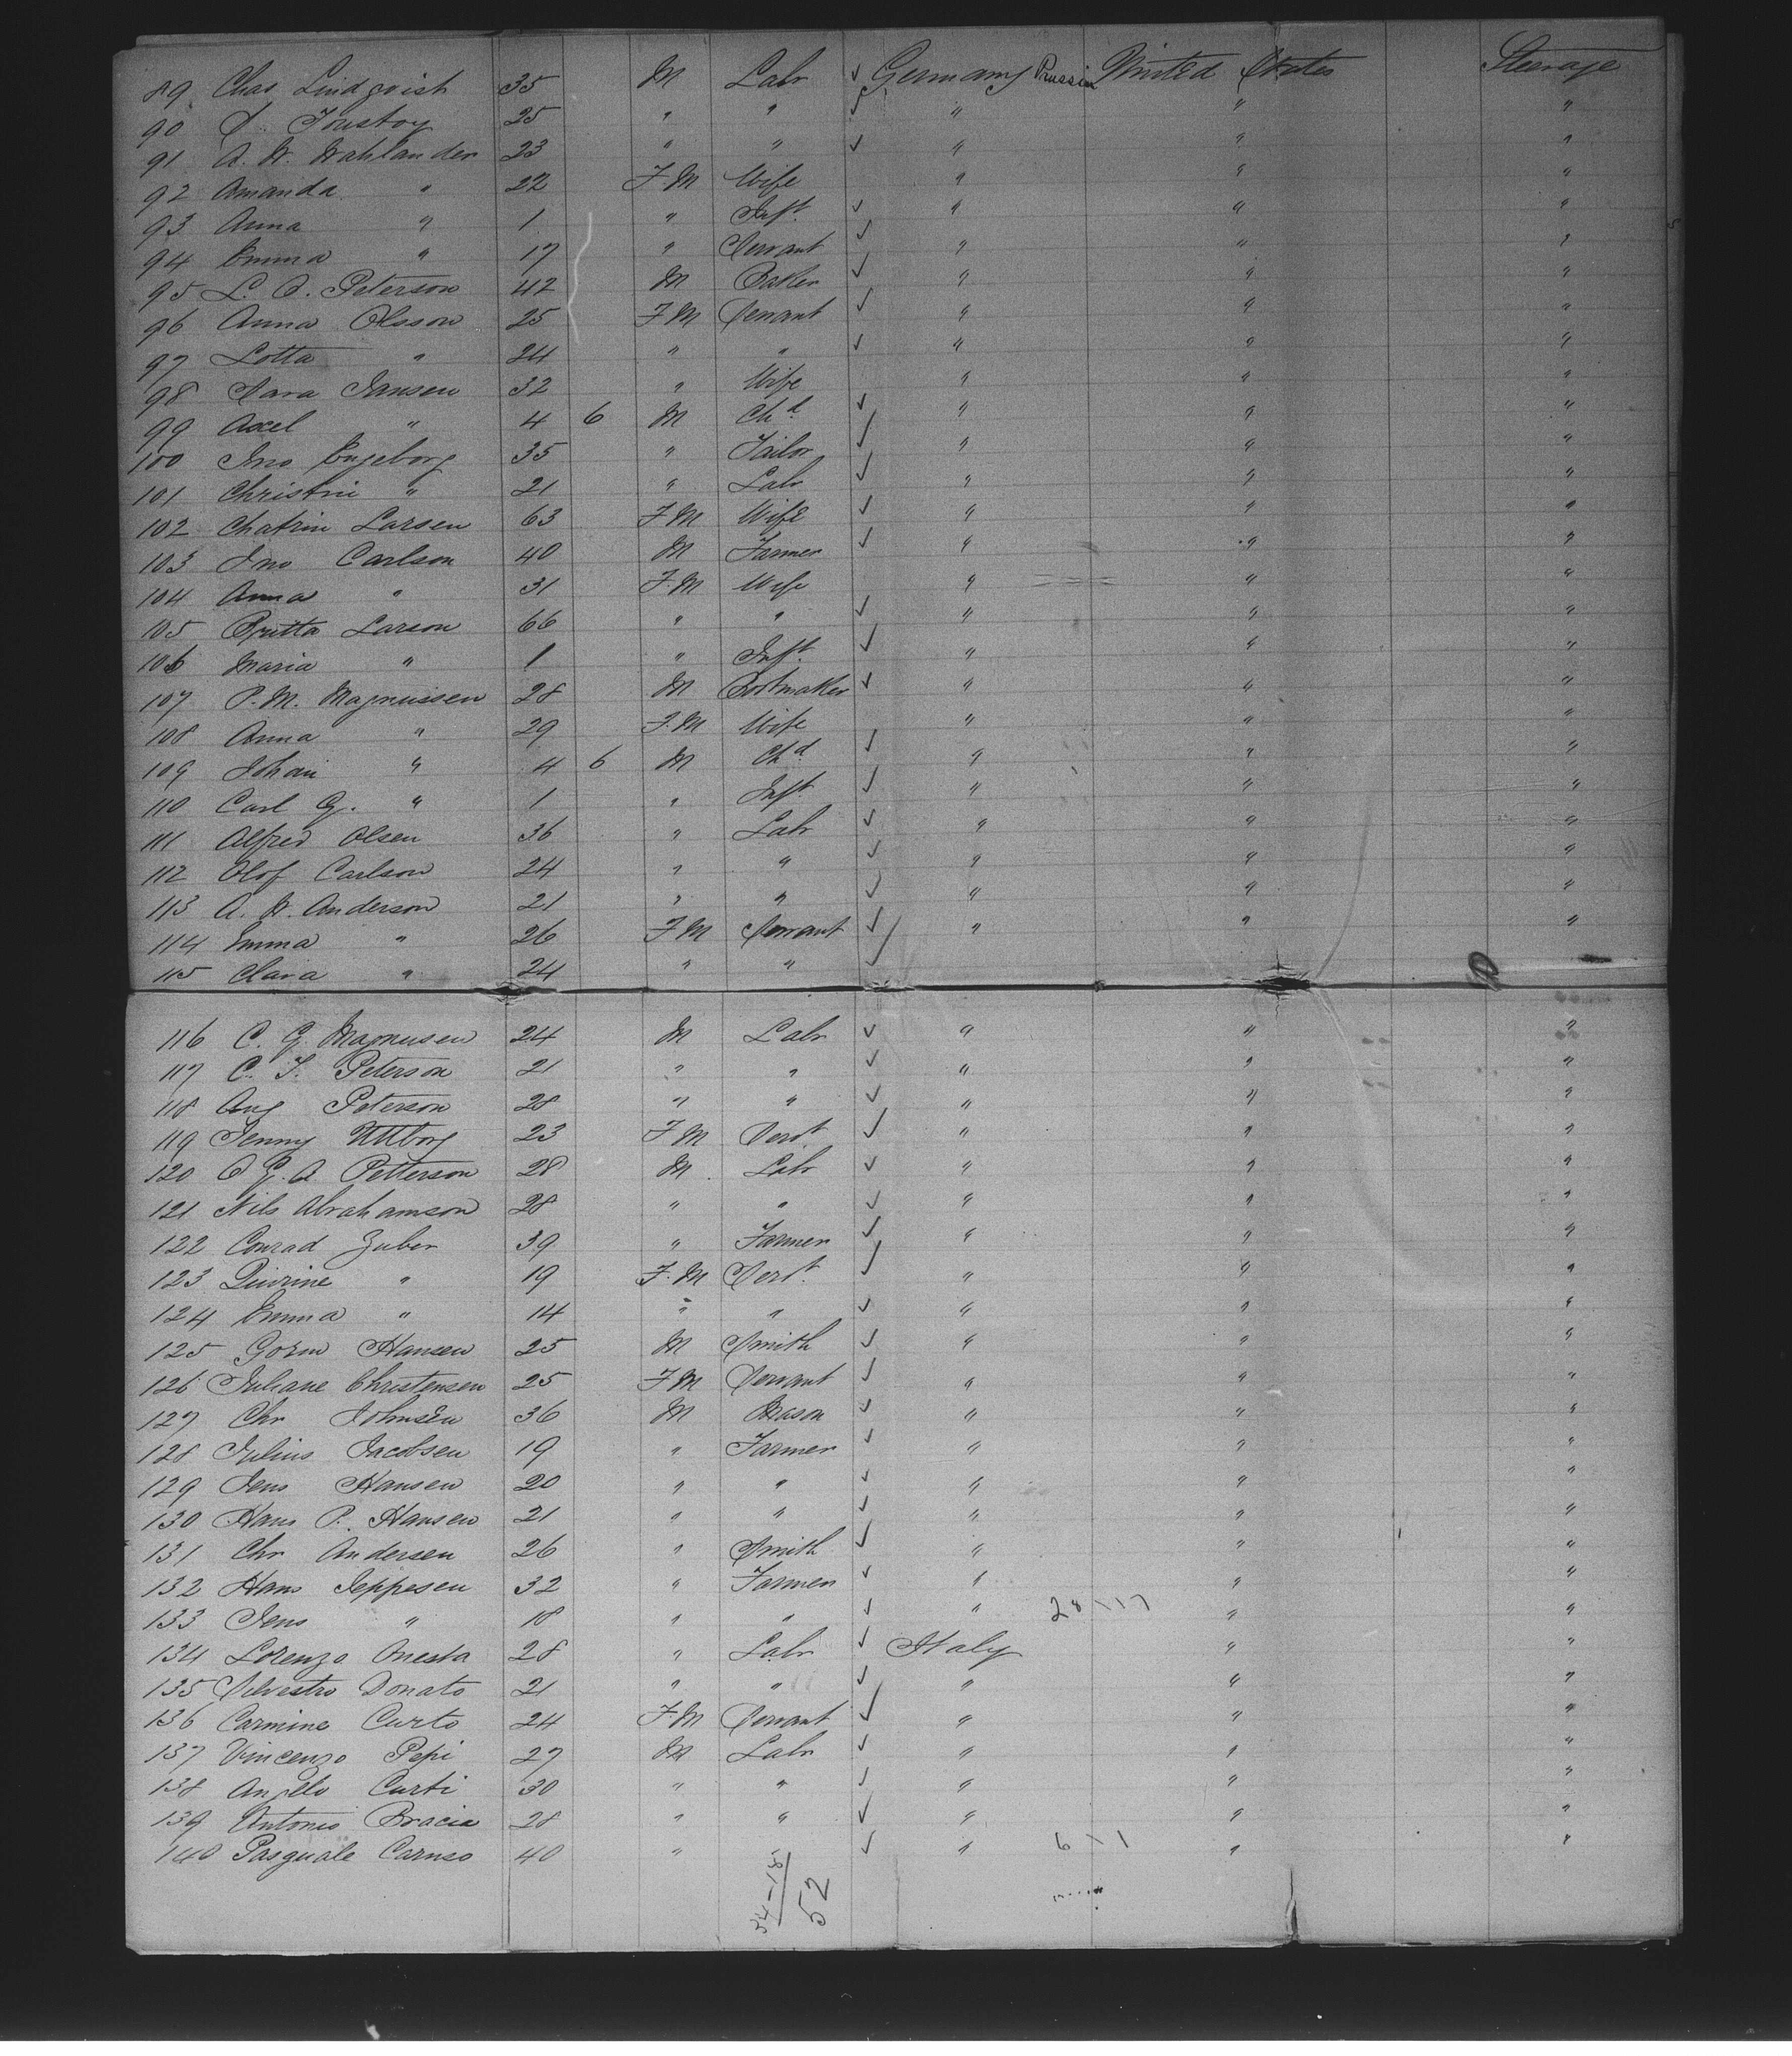 89 Chas Lindqvist 35 M Labr ✓ Germany Prussia United States Steerage
90 25 " " ✓ " " "
91 A. W. Wahlander 23 " " ✓ " " "
92 Amanda " 22 F M Wife " " "
93 Anna " 1 " Inft ✓ " " "
94 Emma " 17 " Servant ✓ " " "
95 L. O. Peterson 42 M Baker ✓ " " "
96 Anna Olsson 25 F M Servant ✓ " " "
97 Lotta " 24 " " ✓ " " "
98 Sara Jansen 32 " Wife " " "
99 Axel " 4 6 M Chd ✓ " " "
100 Jno Engeborg 35 " Tailor ✓ " " "
101 Christin " 21 " Labr ✓ " " "
102 Chatrin Larsen 63 F M Wife ✓ " " "
103 Jno Carlson 40 M Farmer ✓ " " "
104 Anna " 31 F. M Wife " " "
105 Britta Larson 66 " " ✓ " " "
106 Maria " 1 " Inft ✓ " " "
107 P. M. Magnussen 28 M Bootmaker ✓ " " "
108 Anna " 29 F. M Wife " " "
109 Johan " 4 6 M Chd ✓ " " "
110 Carl G. " 1 " Inft ✓ " " "
111 Alfred Olsen 36 " Labr ✓ " " "
112 Olof Carlson 24 " " ✓ " " "
113 A. W. Anderson 21 " " ✓ " " "
114 Emma " 26 F M Servant ✓ " " "
115 Clara " 24 " " ✓
116 C. G. Magnusen 24 M Labr ✓ " " "
117 C. J. Peterson 21 " " ✓ " " "
118 Aug Peterson 28 " " ✓ " " "
119 Jenny Uttborg 23 F M Servt ✓ " " "
120 O G. A. Petterson 28 M Labr ✓ " " "
121 Nils Abrahamson 28 " " ✓ " " "
122 Conrad Zuber 39 " Farmer ✓ " " "
123 " 19 F. M Servt ✓ " " "
124 Emma " 14 " " ✓ " " "
125 Gorm Hansen 25 M Smith ✓ " " "
126 Juliane Christensen 25 F M Servant ✓ " " "
127 Chr Johnsen 36 M Mason ✓ " " "
128 Julius Jacobsen 19 " Farmer ✓ " " "
129 Jens Hansen 20 " " ✓ " " "
130 Hans P. Hansen 21 " " ✓ " " "
131 Chr Andersen 26 " Smith ✓ " " "
132 Hans Jeppesen 32 " Farmer ✓ " " "
133 Jens " 18 " " ✓ " 28 \ 17 " "
134 Lorenzo Onesta 28 " Labr ✓ Italy " "
135 Silvestro Donato 21 " " ✓ " " "
136 Carmine Curto 24 F. M Servant ✓ " " "
137 Vincenzo Pepi 27 M Labr ✓ " " "
138 Angelo Curti 30 " " ✓ " " "
139 Antonio Bracia 28 " " ✓ " " "
140 Pasquale Caruso 40 " ✓ " 6 \ 1 " "
34-18
52